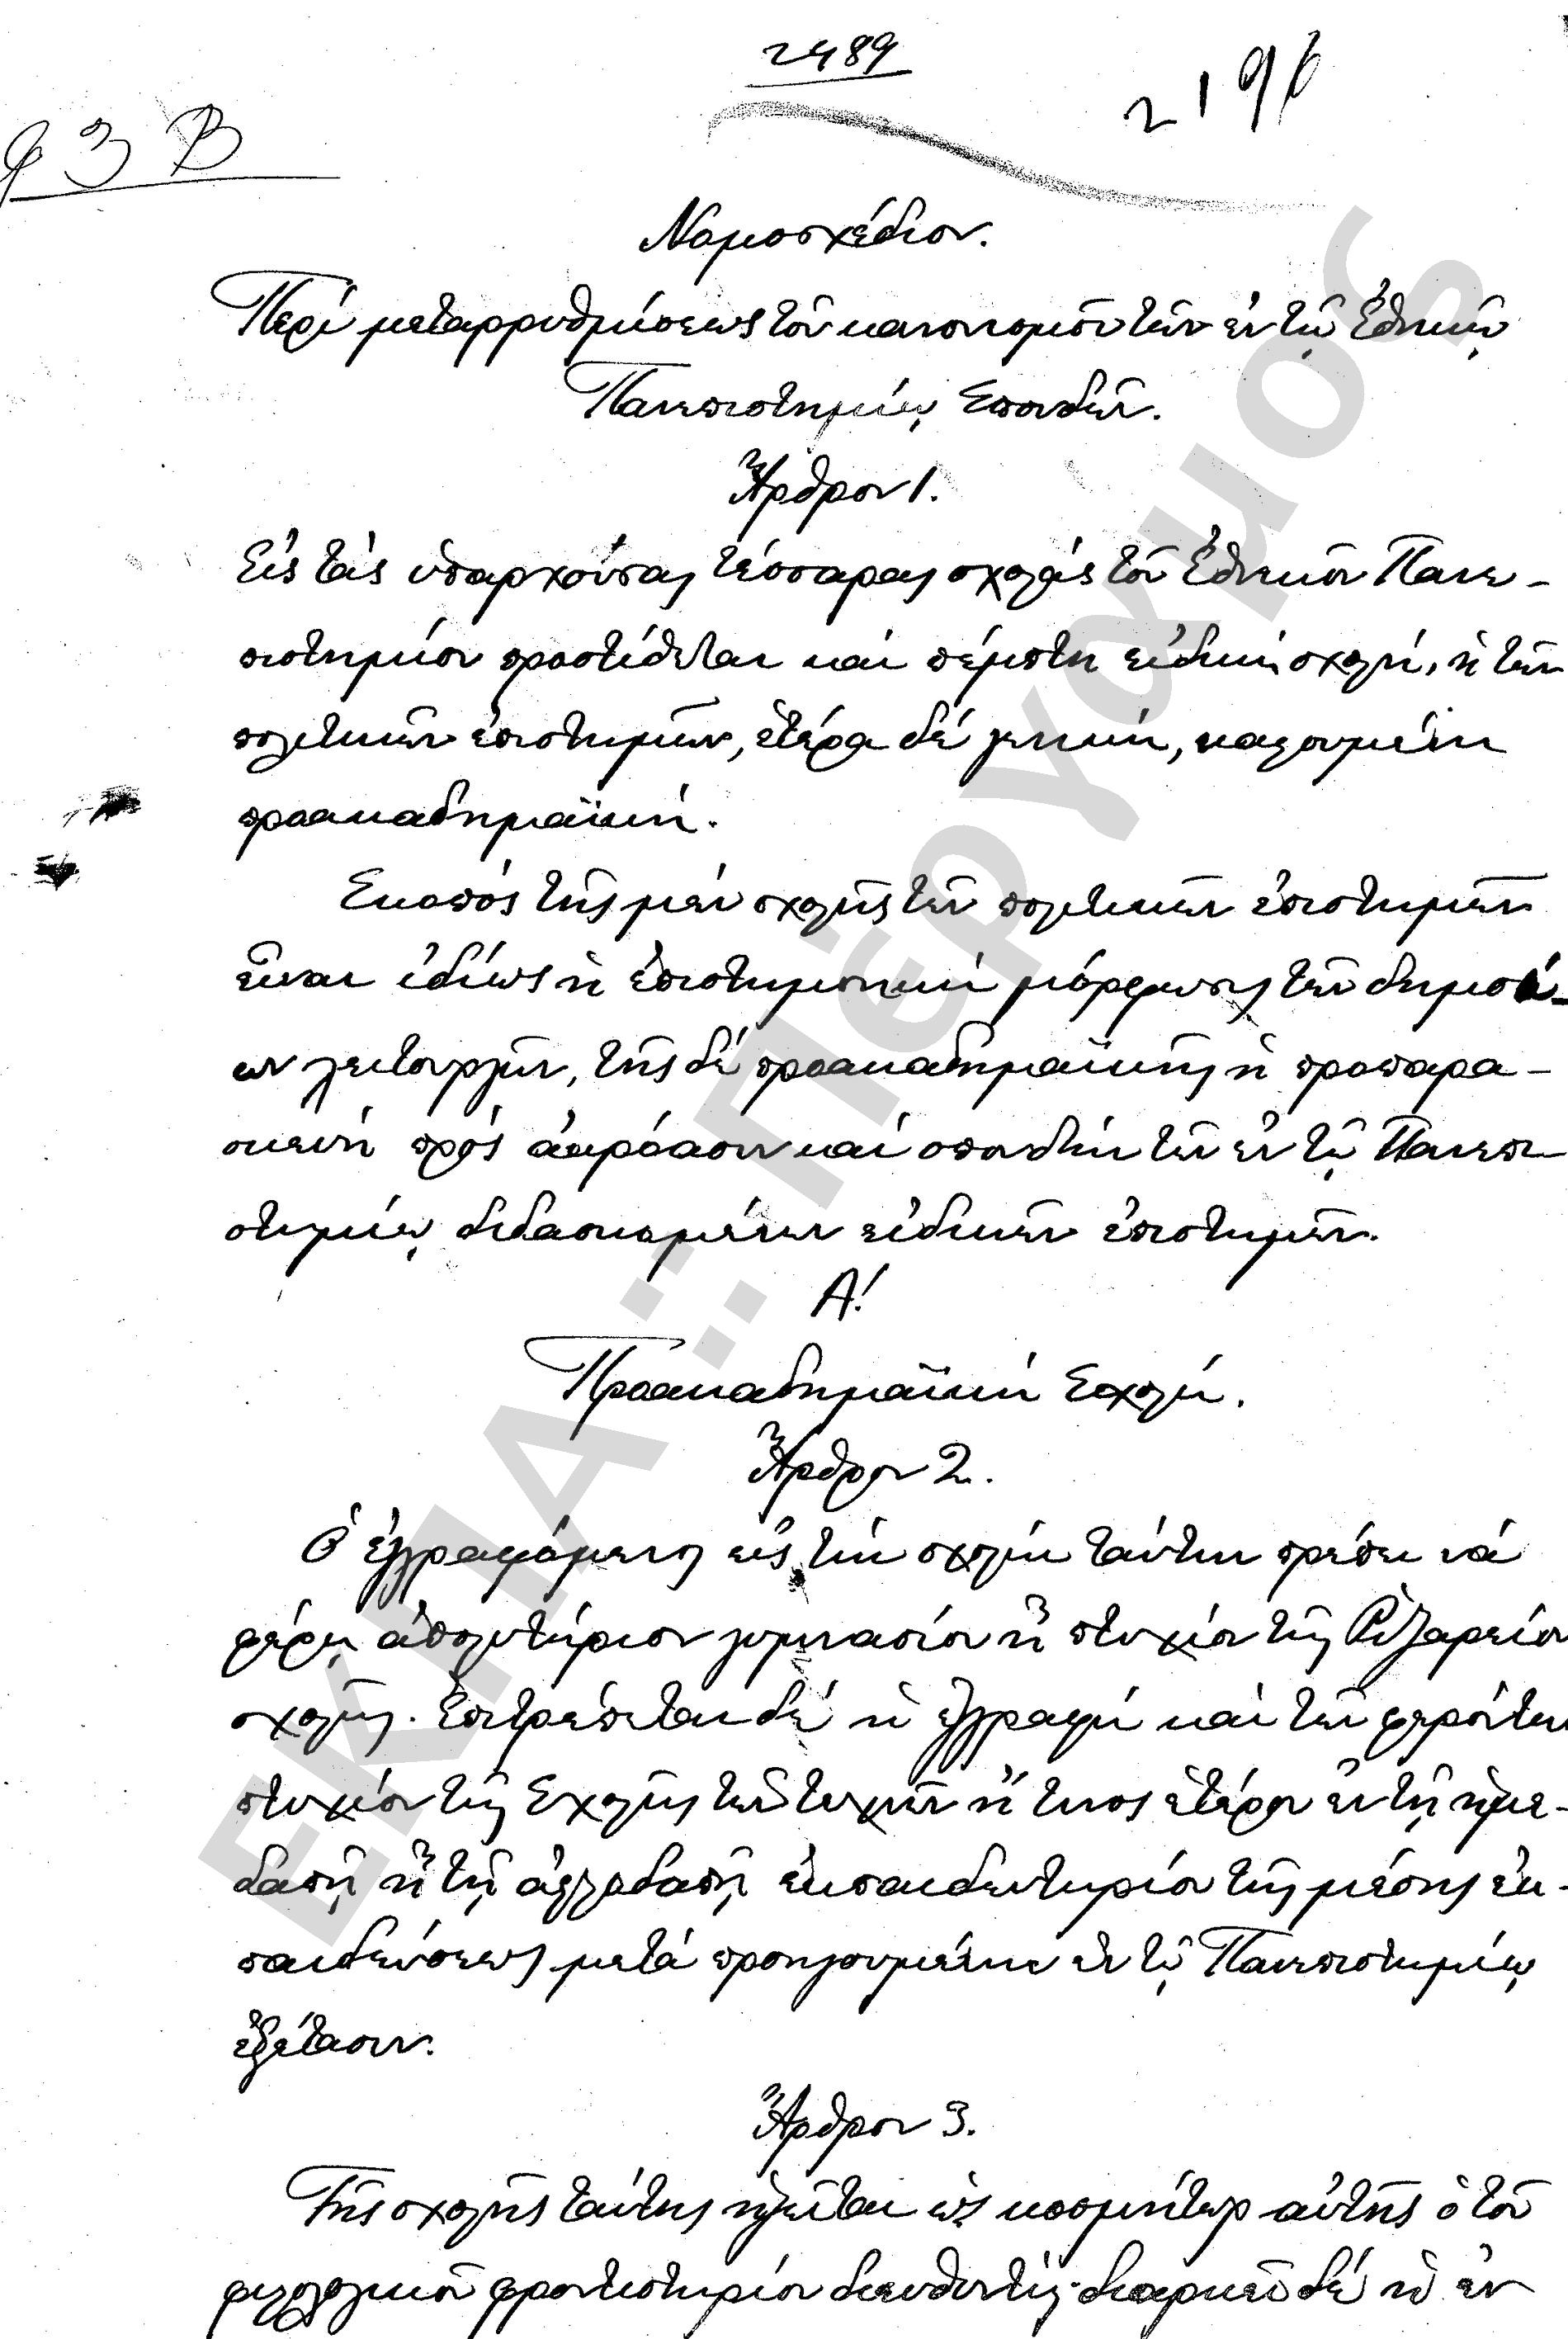 2489
93 Β
Νομοσχέδιον.
Περί μεταρρυθμίσεως τοῦ κανονισμοῦ τῶν ἐν τῷ Ἐθνικῷ
Πανεπιστημίῳ Σπουδῶν.
Ἄρθρον 1.
Εἰς τάς ὑπαρχούσας τέσσαρας σχολάς τοῦ Ἐθνικοῦ Πανε-
πιστημίου προστίθεται καί πέμπτη εἰδική σχολή, ἡ τῶν
πολιτικῶν ἐπιστημῶν, ἑτέρα δέ γενική, καλουμένη
προακαδημαϊκή.
Σκοπός τῆς μέν σχολῆς τῶν πολιτικῶν ἐπιστημῶν
εἶναι ἰδίως ἡ ἐπιστημονική μόρφωσις τῶν δημοσί-
ων λειτουργῶν, τῆς δέ προακαδημαϊκῆς ἡ προπαρα-
σκευή πρός ἀκρόασιν καί σπουδήν τῶν ἐν τῷ Πανεπι-
στημίῳ διδασκομένων εἰδικῶν ἐπιστημῶν.
Α!
Προακαδημαϊκή Σχολή.
Ἄρθρον 2.
Ὁ ἐγγραφόμενος εἰς τήν σχολήν ταύτην πρέπει νά
φέρῃ ἀπολυτήριον γυμνασίου ἤ πτυχίον τῆς Ριζαρείου
σχολῆς. Ἐπιτρέπεται δέ ἡ ἐγγραφή καί τῶν φερόντων
πτυχίον τῆς Σχολῆς τῶν τεχνῶν ἤ τινος ἑτέρου ἐν τῇ ἡμε-
δαπῇ ἤ τῇ ἀλλοδαπῇ ἐκπαιδευτηρίου τῆς μέσης ἐκ-
παιδεύσεως μετά προηγουμένην ἐν τῷ Πανεπιστημίῳ
ἐξέτασιν.
Ἄρθρον 3.
Τῆς σχολῆς ταύτης ἡγεῖται ὡς κοσμήτωρ αὐτῆς ὁ τοῦ
φιλολογικοῦ φροντιστηρίου διευθυντής· διαρκεῖ δέ ἡ ἐν
ΕΚΠΑ: Πέργαμος